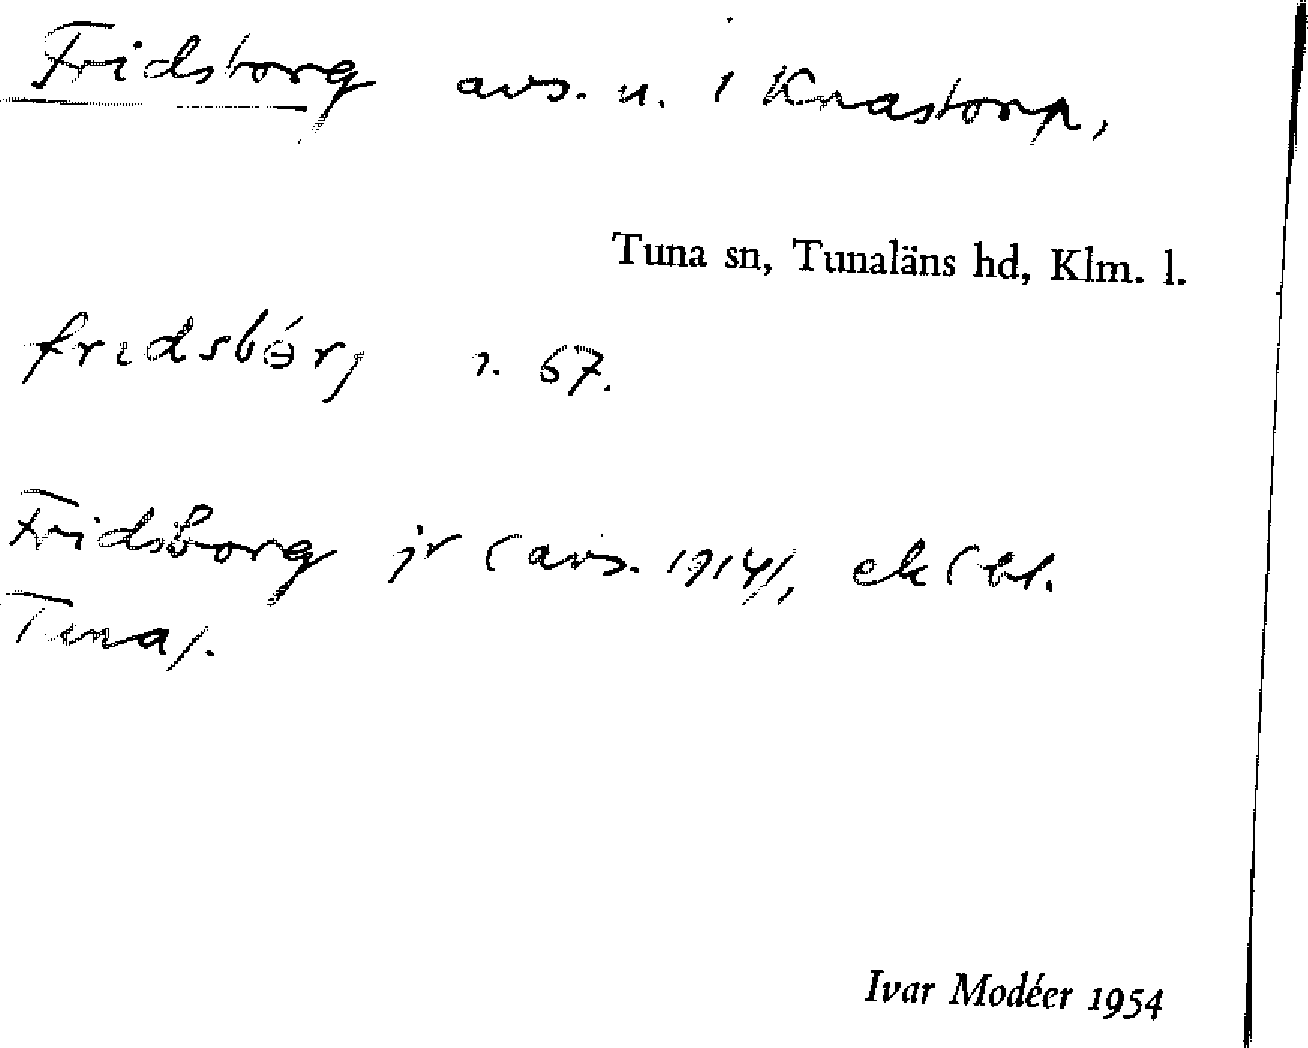 Fridsborg avs. u. i Knastorp,
Tuna sn, Tunaläns hd, Klm. l.
fridsbór, 67.
Fridsborg jr (avs. 1914), ek (bl.
Tuna).
Ivar Modéer 1954